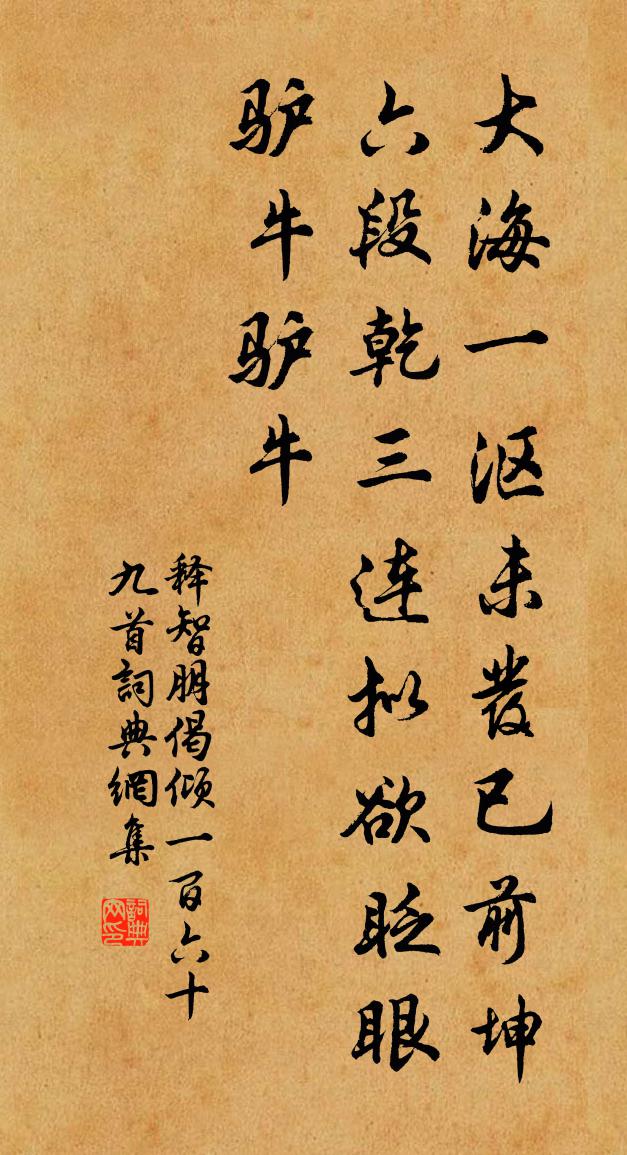 大海一沤未發已前坤
六段乾三連拟欲眨眼
驴牛驴牛
释智朋偈倾一百六十
九首詞典網集
詞典网印